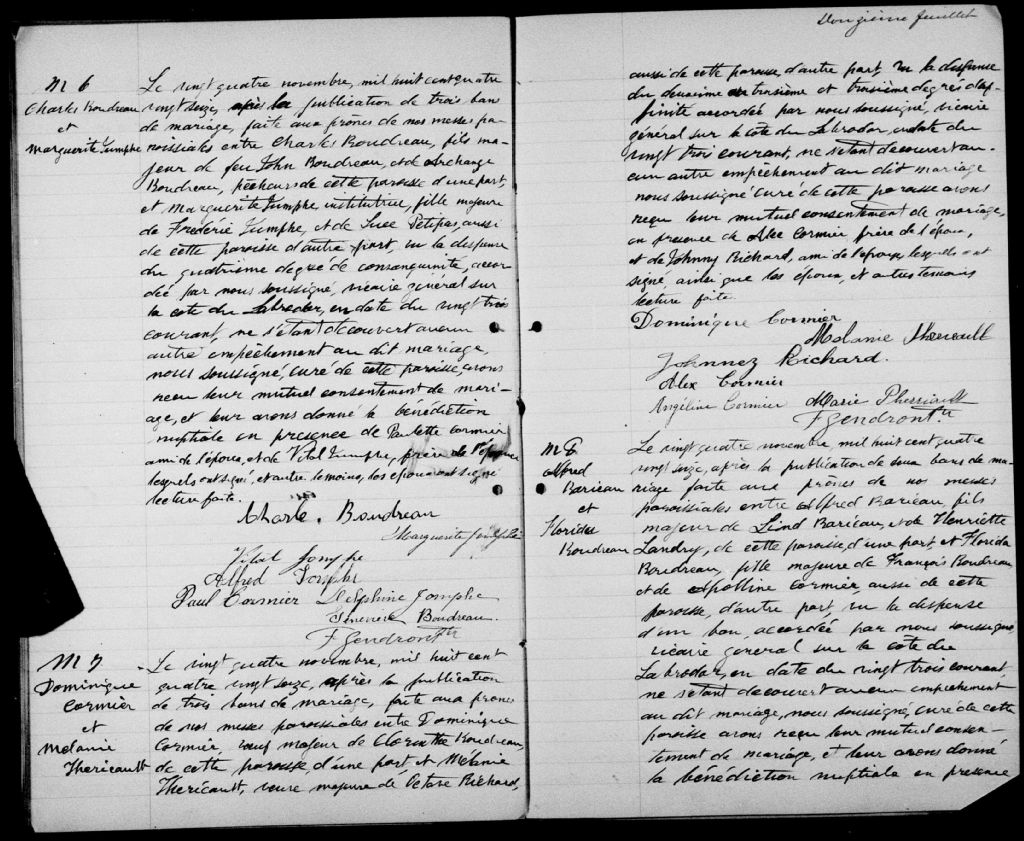 M 6
Charles Boudreau
et
Marguerite Jumphe
Le vingt quatre novembre, mil huit cent quatre
vingt seize, après la publication de trois bans
de mariage, faite aux prônes de nos messes pa-
roissiales entre Charles Boudreau, fils ma-
jeur de feu John Boudreau, et de Archange
Boudreau, pêcheurs de cette paroisse d'une part,
et Marguerite Jumphe institutrice, fille majeure
de Frédéric Jumphe, et de Luce Petipas, aussi
de cette paroisse d'autre part, vu la dispense
du quatrième degré de consanguinité, accor-
dée par nous soussigné, vicaire général sur
la côte du Labrador, en date du vingt trois
courant, ne s'étant découvert aucun
autre empêchement au dit mariage,
nous soussigné, curé de cette paroisse, avons
reçu leur mutuel consentement de mari-
age, et leur avons donné la bénédiction
nuptiale en presence de Paulette Cormier
ami de l'époux, et de Vital Jumphe, frère de l'épouse
lesquels ont signé, et autre témoins, les époux ont signé
lecture faite.
Charle. Boudreau
Marguerite
Vital Jomphe
Alfred Jomphe
Paul Cormier Delphine Jomphe
Boudreau
F Gendron Ptre
M 7
Dominique
Cormier
et
Mélanie
Thericault
Le vingt quatre novembre, mil huit cent
quatre vingt seize, après la publication
de trois bans de mariage, faite aux prones
de nos messes paroissiales entre Dominique
Cormier, veuf majeur de Clorinthe Boudreau,
de cette paroisse, d'une part et Mélanie
Thericault, veuve majeure de Octave Richard,
Douzième feuillet
aussi de cette paroisse, d'autre part, vu la dispense
du deuxième au troisième et troisième degrés d'af-
finité accordée par nous soussigné, vicaire
général sur la côte du Labrador, en date du
vingt trois courant, ne s'étant découvert au-
cun autre empêchement au dit mariage
nous soussigné curé de cette paroisse avons
reçu leur mutuel consentement de mariage,
en présence de Alex Cormier frère de l'époux,
et de Johnny Richard, ami de l'époux, lesquels ont
signé, ainsi que les époux, et autres témoins
lecture faite
Dominique Cormier
Melanie Theriault
Johnnez Richard.
Alex Cormier
Angéline Cormier Marie Therriault
F Gendron Ptr.
M 8
Alfred
Barieau
et
Florida
Boudreau
Le vingt quatre novembre, mil huit cent quatre
vingt seize, après la publication de deux bans de ma-
riage faite aux prônes de nos messes
paroissiales entre Alfred Barieau, fils
majeur de Barieau, et de Henriette
Landry, de cette paroisse, d'une part, et Florida
Boudreau, fille majeure de François Boudreau,
et de Apolline Cormier, aussi de cette
paroisse, d'autre part, vu la dispense
d'un ban, accordée par nous soussigné,
vicaire général sur la côte du
Labrador, en date du vingt trois courant,
ne s'étant découvert aucun empêchement
au dit mariage, nous soussigné, curé de cette
paroisse avons reçu leur mutuel consen-
tement de mariage, et leur avons donné
la bénédiction nuptiale en présence